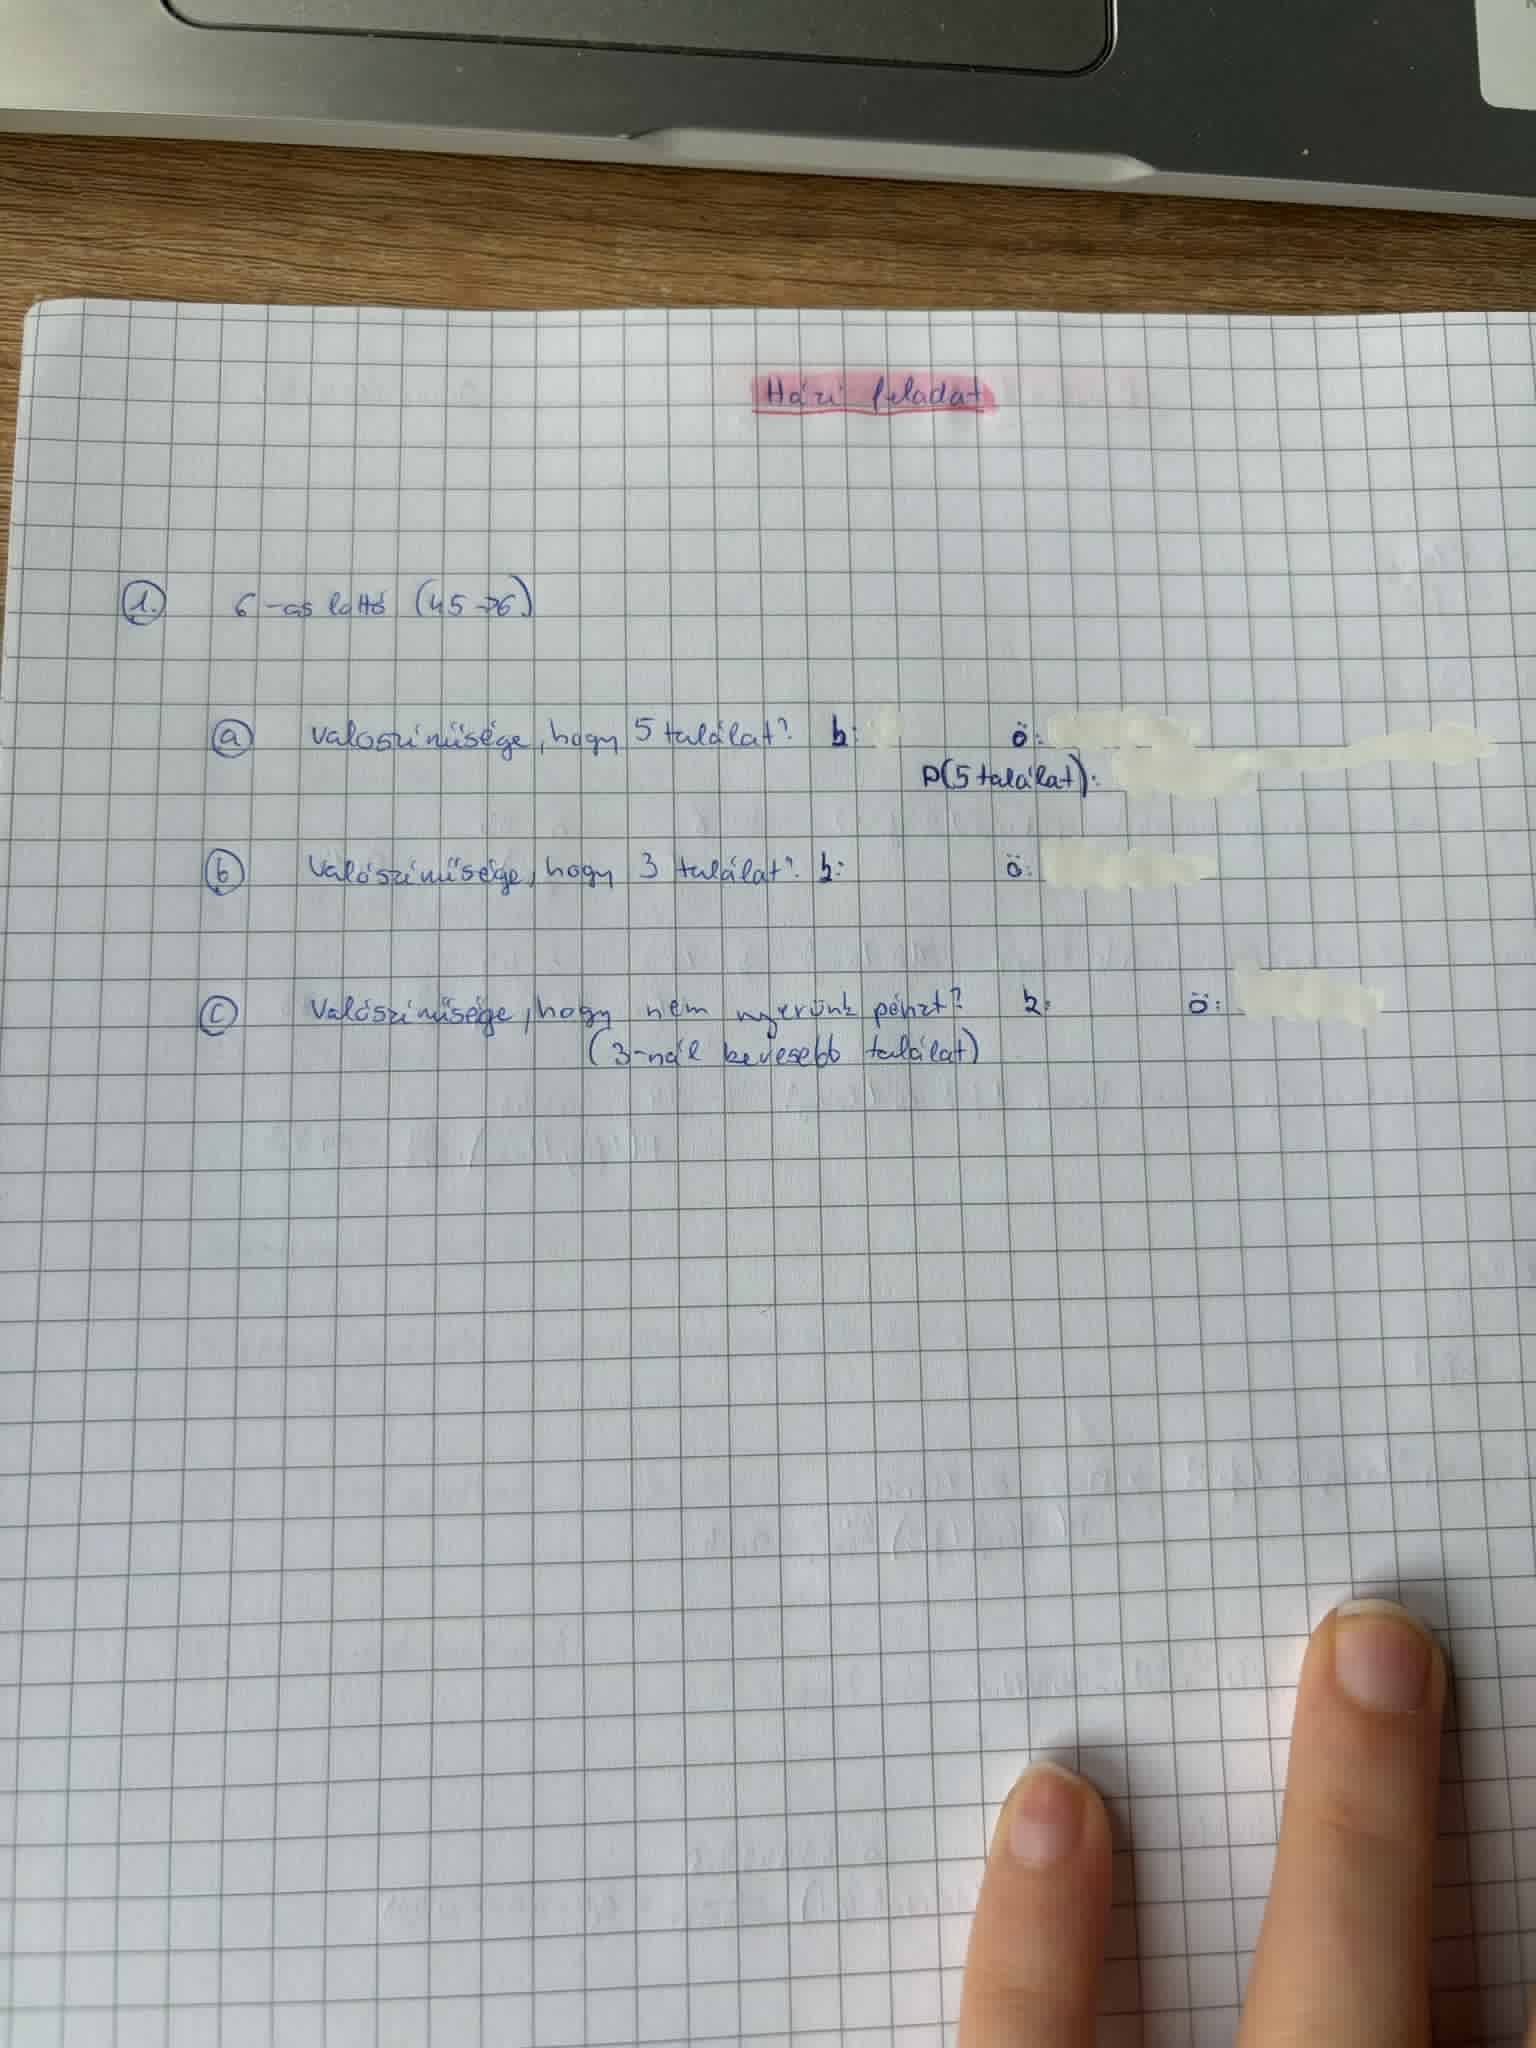 Házi feladat
1. 6-os lottó (45→6)
a valoszinűsége, hogy 5 találat? k: ö:
P(5 találat):
b valószinűsége, hogy 3 találat? k: ö:
c valószinűsége, hogy nem nyerünk pénzt? k: ö:
(3-nál kevesebb találat)